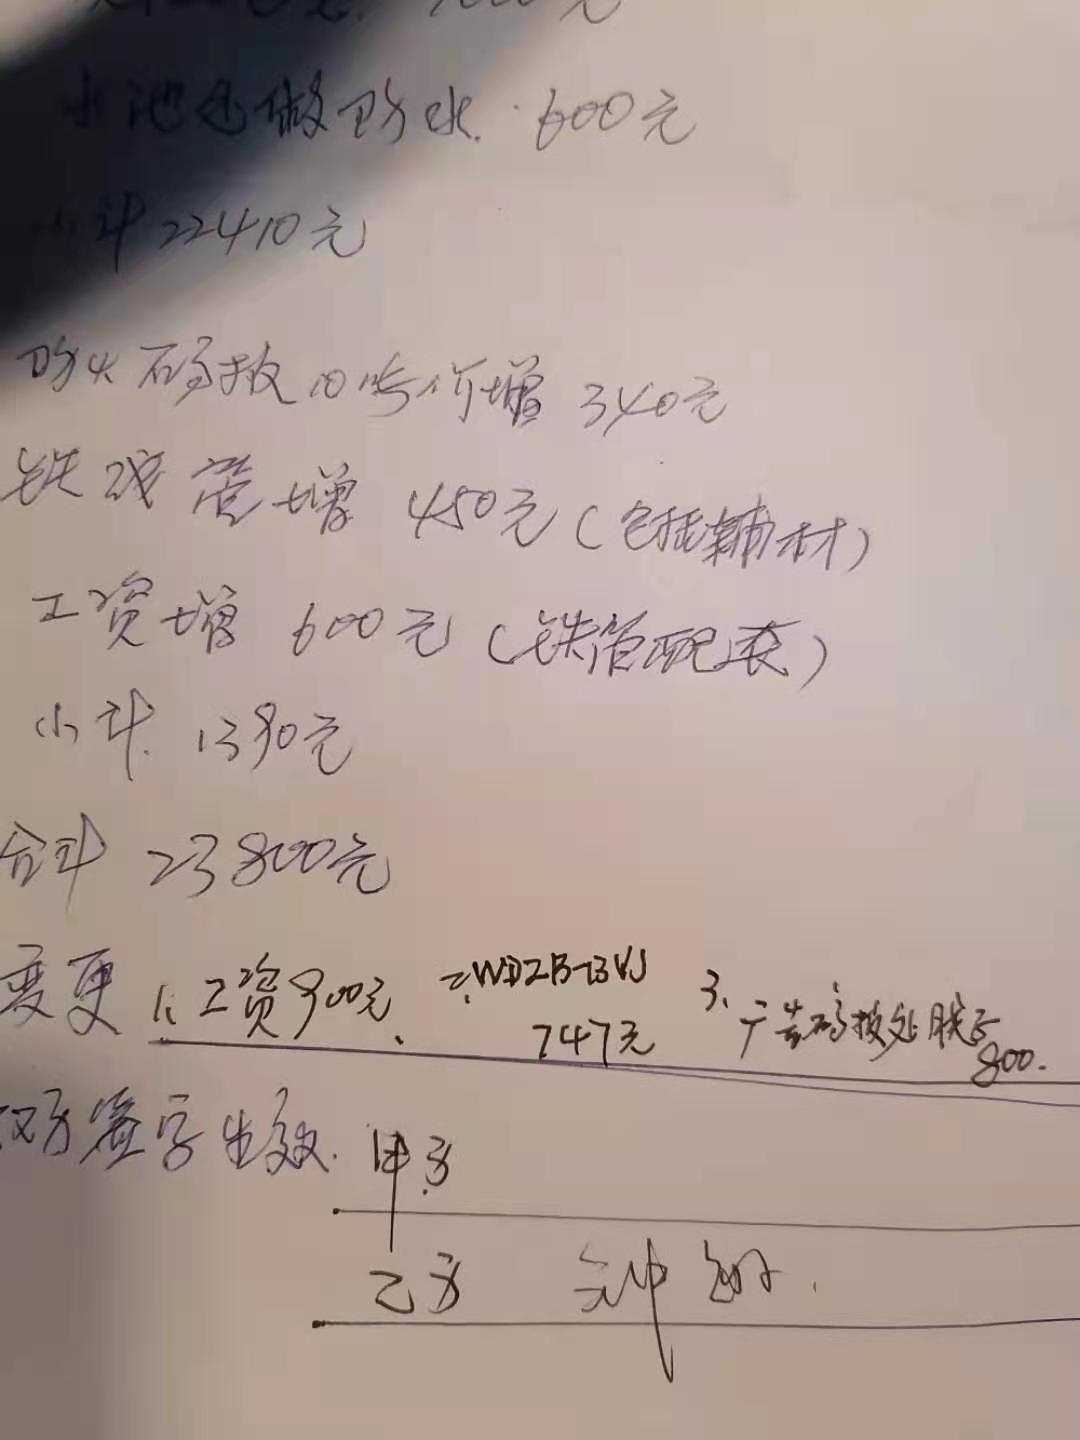 水池包做防水. 600元
小计 22410元
防火石高板10吨价增 340元
铁线管增 450元(包括辅材)
工资增 600元(铁管配套)
小计. 1390元
合计 23800元
变更 1、工资900元、 2、WDZB-BVJ 747元 3、广告码板处 800.
双方签字生效. 甲方
乙方